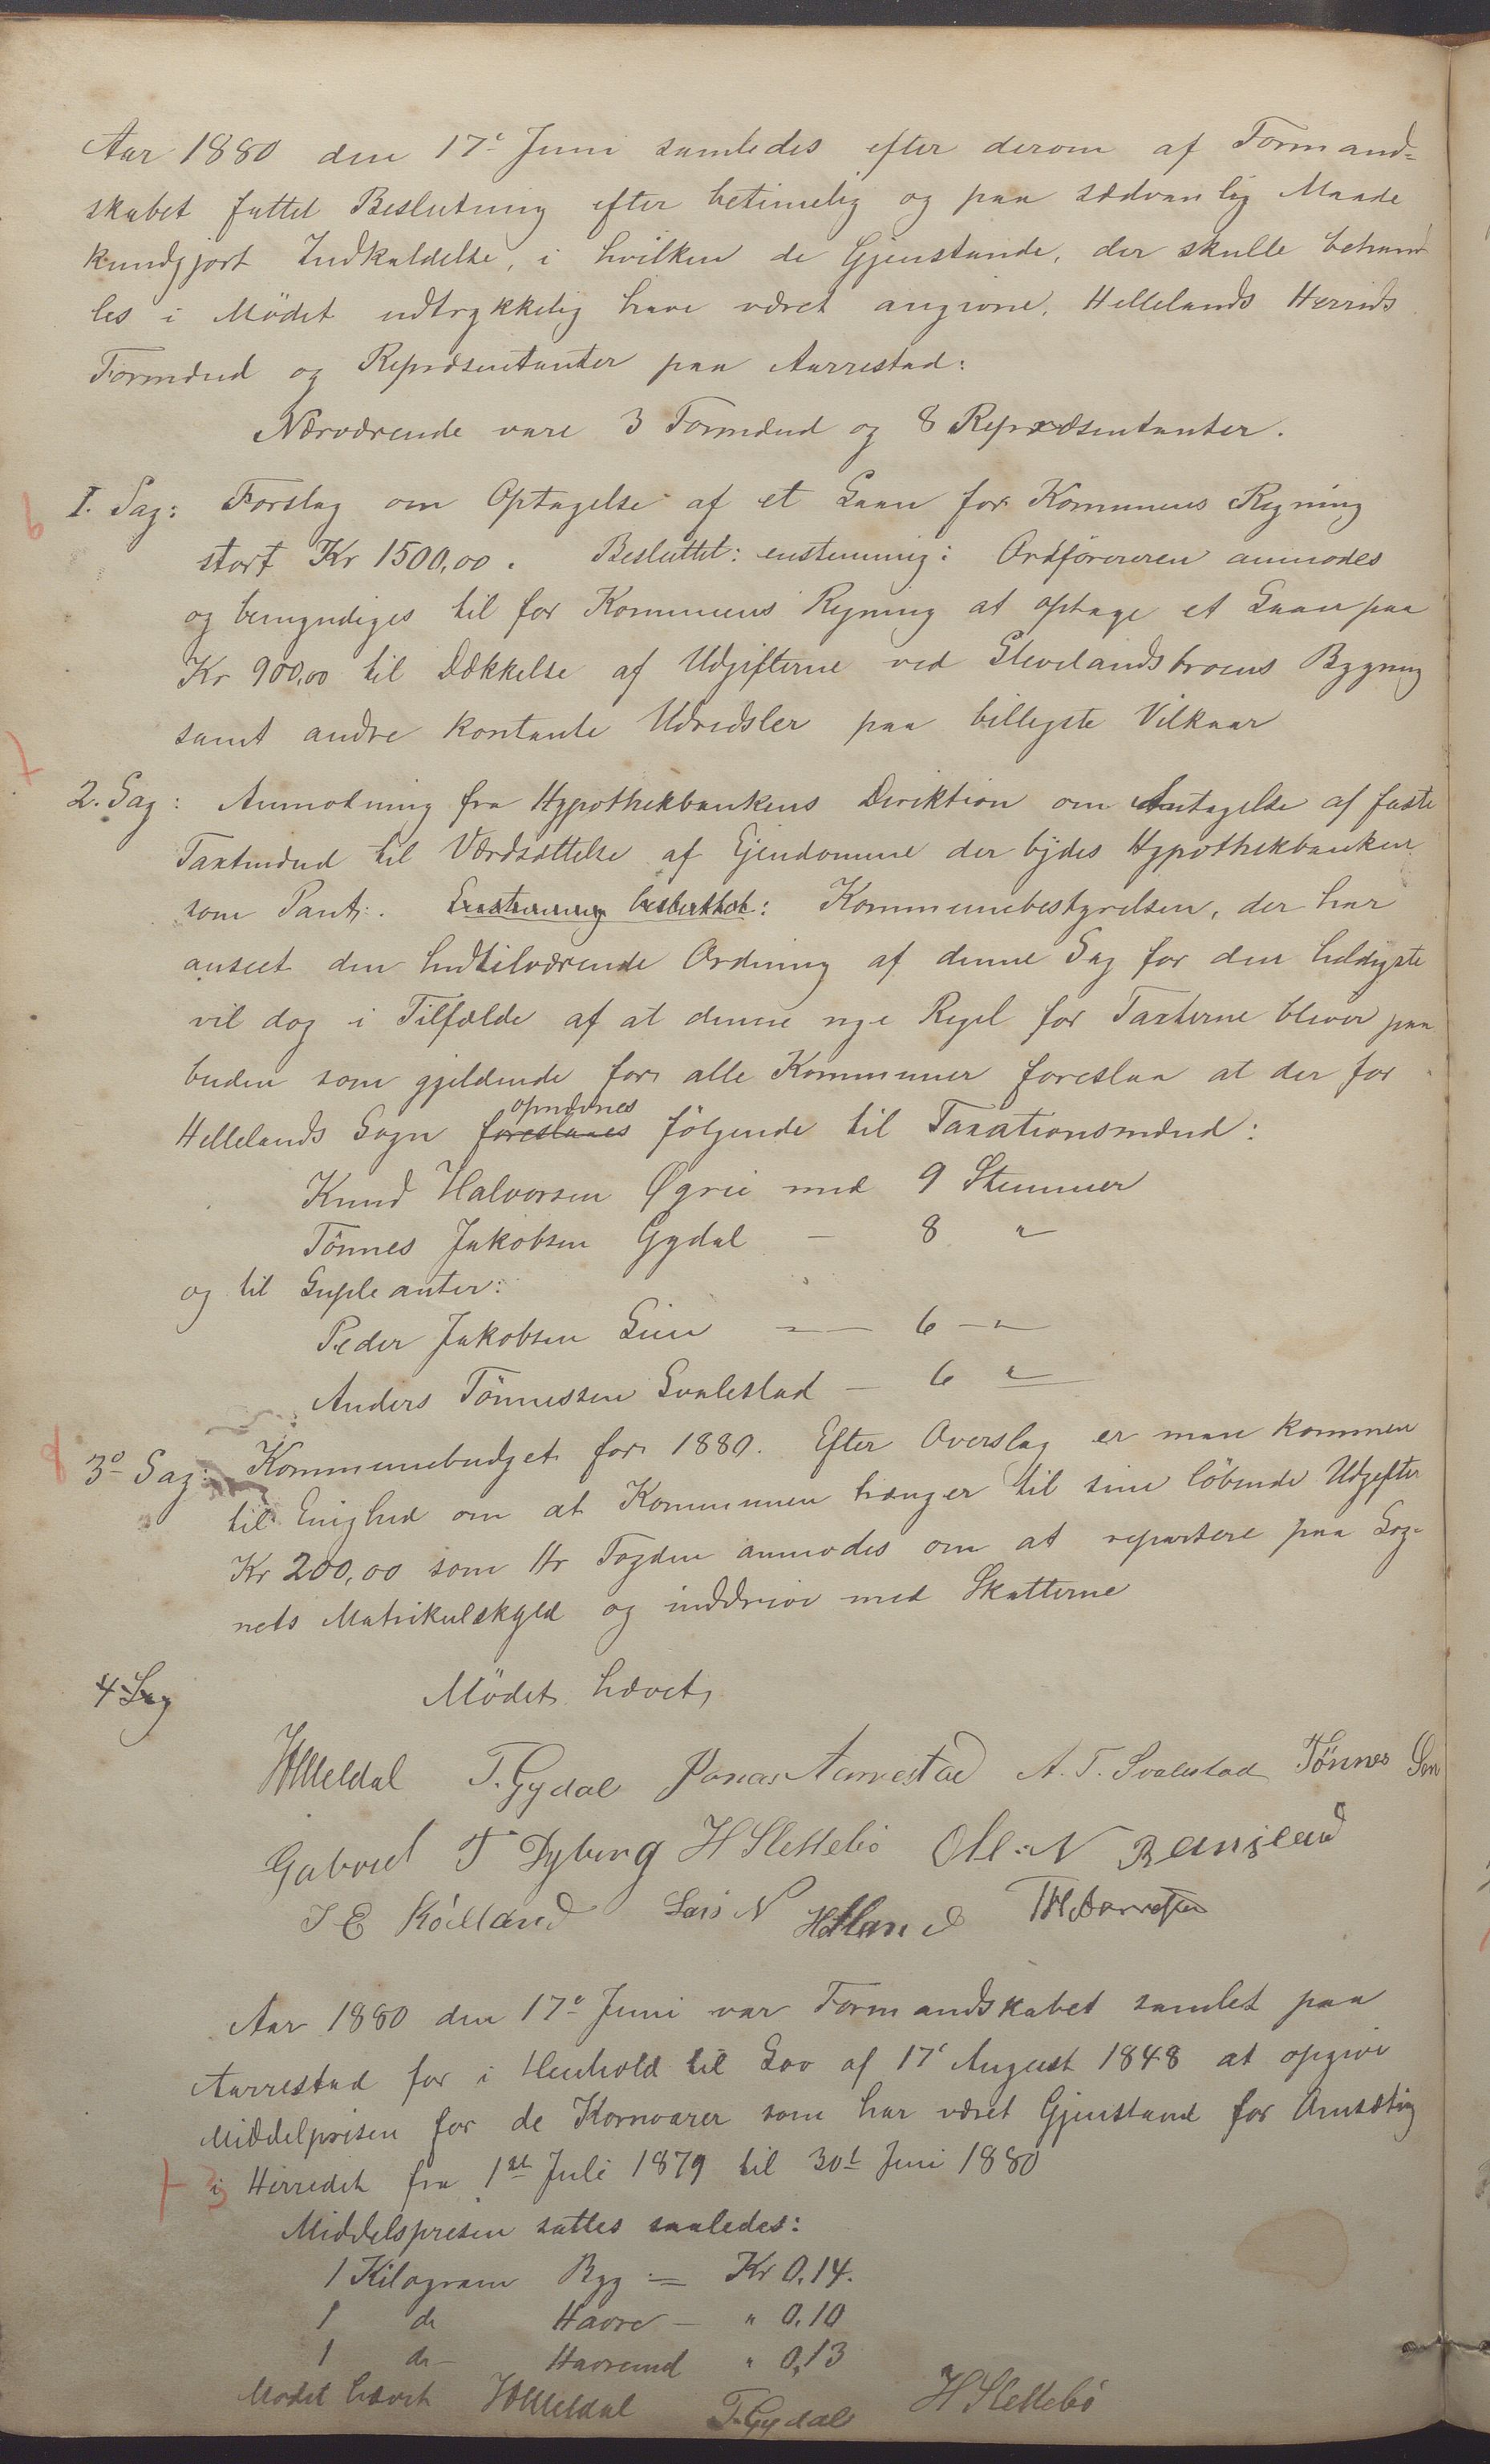 Aar 1880 den 17e Juni samledes efter derom af Formand-
skabet fattet Beslutning efter betimelig og paa sædvanlig Maade
kundgjort Indkaldelse, i hvilken de Gjenstande, der skulle behand
les i Mödet udtrykkelig have været angivne, Hellelands Herreds
Formænd og Repræsentanter paa Aarrestad:
Nærværende vare 3 Formænd og 8 Repræsentanter.
6 I. Sag: Forslag om Optagelse af et Laan for Kommunens Regning
stort Kr 1500,00. Besluttet: enstemmig: Ordföreren anmodes
og bemyndiges til for Kommunens Regning at optage et Laan paa
Kr 900,00 til Dækkelse af Udgifterne ved Slevelandsbroens Bygning
samt andre kontante Udredsler paa billigste Vilkaar
7 2. Sag: Anmodning fra Hypothekbankens Direktion om Antagelse af faste
Taxtmænd til Værdsættelse af Ejendomme der bydes Hypothekbanken
som Pant. Enstemmig besluttet: Kommunebestyrelsen, der har
anseet den hidtilværende Ordning af denne Sag for den heldigste
vil dog i Tilfælde af at denne nye Regel for Taxterne bliver paa
buden som gjeldende for alle Kommuner foreslaa at der for
opnævnes
Hellelands Sogn foreslaaes fölgende til Taxationsmænd:
Knud Halvorsen Øgrei med 9 Stemmer
Tönnes Jakobsen Gydal — 8 "
og til Supleanter:
Peder Jakobsen Lien — 6 — "
Anders Tönnessen Svalestad — 6 "
8 3o Sag: Kommunebudget for 1880. Efter Overslag er man kommen
til Enighed om at Kommunen trænger til sine löbende Udgifter
Kr 200,00 som Hr Fogden anmodes om at repartere paa Sog-
nets Matrikulskyld og inddrive med Skatterne
4 Sag Mödet hævet,
T. Gydal Jonas Aarrestad A. T. Svalestad Tönnes
Gabriel T Dybing H Slettebö Ole N Bangland
S E Röilland Lars N Helland
Aar 1880 den 17e Juni var Formandskabet samlet paa
Aarrestad for i Henhold til Lov af 17e August 1848 at opgive
Middelprisen for de Kornvarer som har været Gjenstand for Omsætnig
+ 3 i Herredet fra 1st Juli 1879 til 30t Juni 1880
Middelsprisen sattes saaledes:
1 Kilogram Byg = Kr 0.14.
1 do Havre — " 0.10
1 do Havremel " 0,13
Mödet hævet T. Gydal H Slettebö